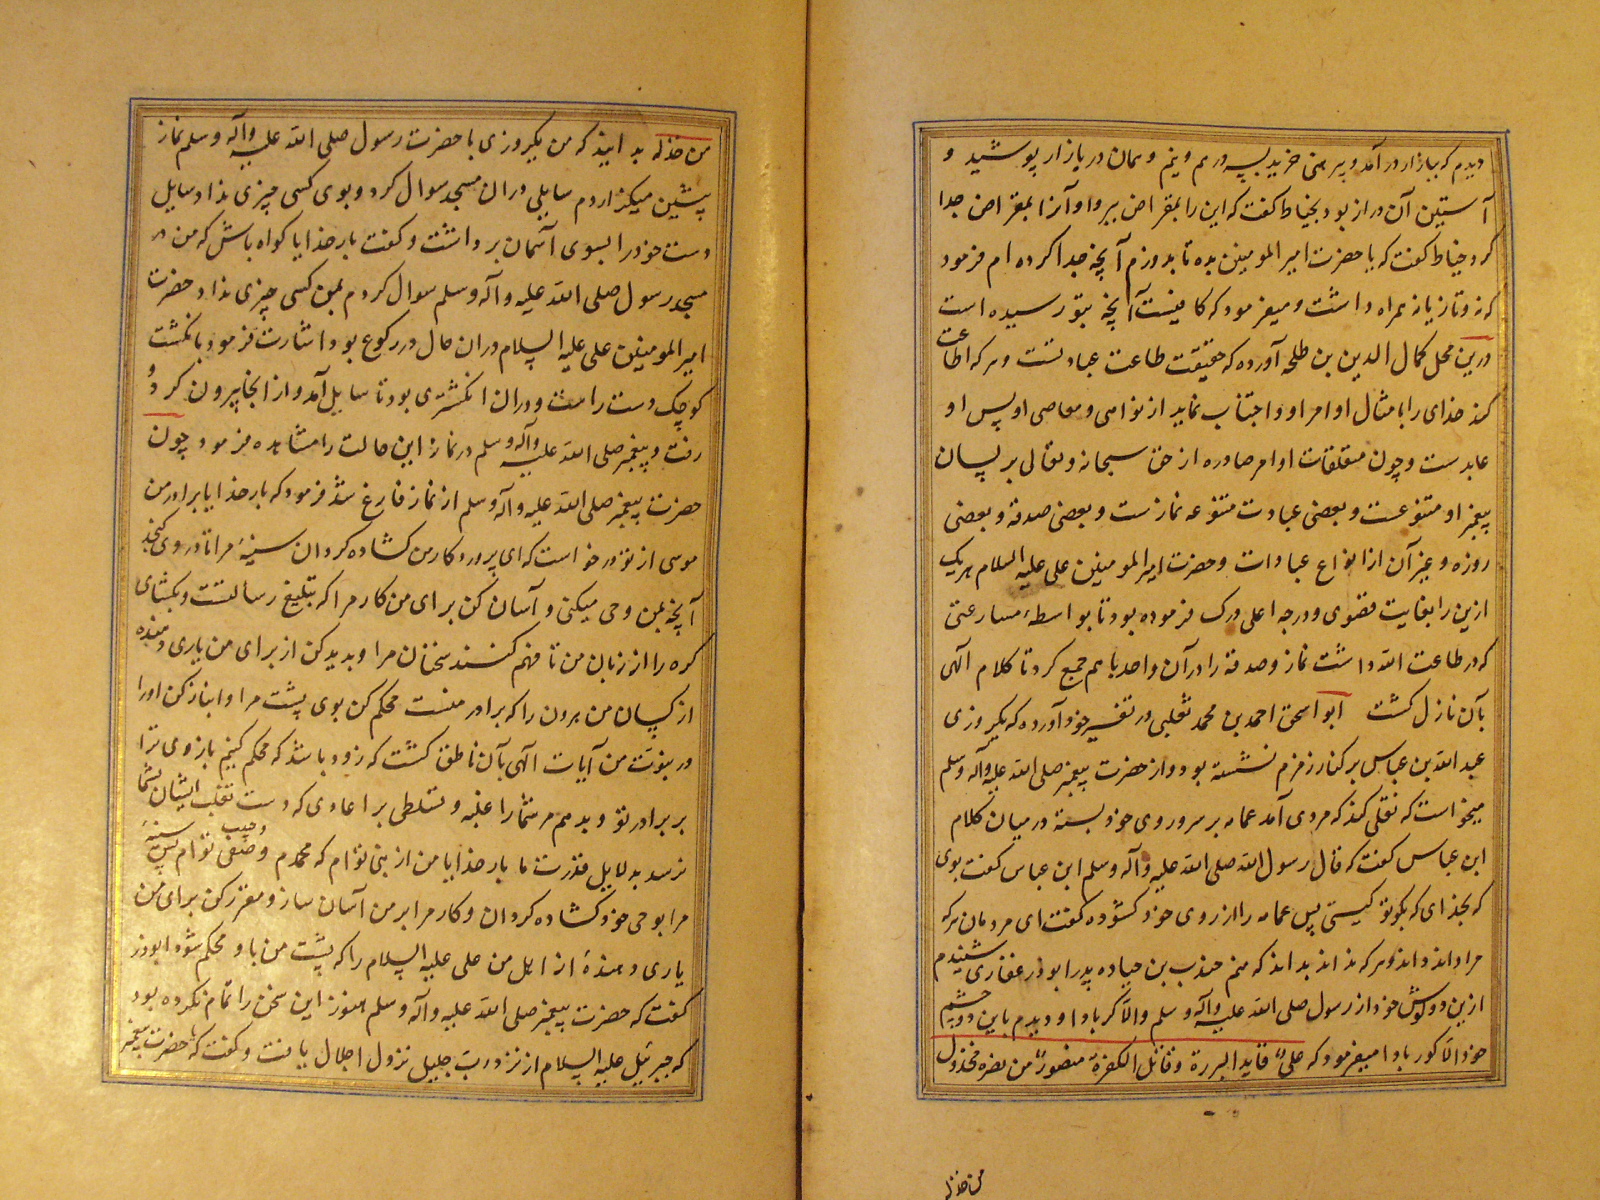 دیدم که ببازار در آمد و پیرهنی خرید بسه درم و نیم و همان در بازار پوشید و
آستین آن دراز بود بخیاط گفت که این را بمقراض ببر و او آنرا بمقراض جدا
کرد خیاط گفت که یا حضرت امیرالمومنین بده تا بدوزم آنچه جدا کرده ام فرمود
که نه و تازیانه همراه داشت و میفرمود که کافیست آنچه بتو رسیده است
درین محل کمال الدین بن طلحه آورده که حقیقت طاعت عبادتست و هر که اطاعت
کند خدای را بامتثال اوامر او و اجتناب نماید از نواهی و معاصی او پس او
عابدست و چون متعلقات اوامر صادره از حق سبحانه و تعالی بر لسان
پیغمبر او متنوعست و بعضی عبادت متنوعه نمازست و بعضی صدقه و بعضی
روزه و غیر آن از انواع عبادات و حضرت امیرالمومنین علی علیه السلام هر یک
ازین را بغایت قصوی و درجه اعلی درک فرموده بود تا بواسطهٔ مسارعتی
که در طاعت الله داشت نماز و صدقه را در آن واحد با هم جمع کرد تا کلام الهی
بآن نازل گشت ابو اسحق احمد بن محمد ثعلبی در تفسیر خود آورده که یکروزی
عبدالله بن عباس بر کنار زمزم نشسته بود و از حضرت پیغمبر صلی الله علیه وآله وسلم
میخواست که نقلی کند که مردی آمد عمامه بر سر و روی خود بسته در میان کلام
ابن عباس گفت که قال رسول الله صلی الله علیه وآله وسلم ابن عباس گفت بوی
که بخدای که بگو تو کیستی پس عمامه را از روی خود گشوده گفت ای مردمان هر که
مرا داند داند و هر که نداند بداند که منم جندب بن جناده بدرا ابوذر غفاری شنیدم
ازین دو گوش خود از رسول صلی الله علیه وآله وسلم والا کر باد او دیدم باین دو چشم
خود والا کور باد او میفرمود که علیٌ قاید البررة و قاتل الکفرة منصورٌ من نصره مخذول
من خذله
من خذله بدانید که من یکروزی با حضرت رسول صلی الله علیه وآله وسلم نماز
پیشین میگزاردم سایلی در ان مسجد سوال کرد و بوی کسی چیزی نداد سایل
دست خود را بسوی آسمان برداشت و گفت بار خدایا گواه باش که من در
مسجد رسول صلی الله علیه وآله وسلم سوال کردم بمن کسی چیزی نداد حضرت
امیرالمومنین علی علیه السلام در ان حال در رکوع بود اشارت فرمود بانگشت
کوچک دست راست و در ان انگشتری بود تا سایل آمد و از انجا بیرون کرد و
رفت و پیغمبر صلی الله علیه وآله وسلم در نماز این حالت را مشاهده فرمود چون
حضرت پیغمبر صلی الله علیه وآله وسلم از نماز فارغ شد فرمود که بار خدایا برادر من
موسی از تو درخواست که ای پروردگار من گشاده گردان سینهٔ مرا تا در وی گنجد
آنچه بمن وحی میکنی و آسان کن برای من کار مرا که تبلیغ رسالتست و بگشای
گره را از زبان من تا فهم کنند سخنان مرا و بدید کن از برای من یاری دهنده
از کسان من هرون را که برادر منست محکم کن بوی پشت مرا و انباز کن او را
در نبوت من آیات الهی بآن ناطق گشت که زود باشد که محکم کنیم بازوی ترا
بر برادر تو و بدهیم مر شما را غلبه و تسلطی بر اعادی که دست تغلب ایشان بشما
نرسد بدلایل قدرت ما بار خدایا من از بنی توام که محمدم و صفی و حبیب توام پس سینهٔ
مرا بوحی خود گشاده گردان و کار مرا بر من آسان ساز و مقرر کن برای من
یاری دهندهٔ از اهل من علی علیه السلام را که پشت من باو محکم شود ابوذر
گفت که حضرت پیغمبر صلی الله علیه وآله وسلم هنوز این سخن را تمام نکرده بود
که جبرئیل علیه السلام از نزد رب جلیل نزول اجلال یافت و گفت که حضرت پیغمبر